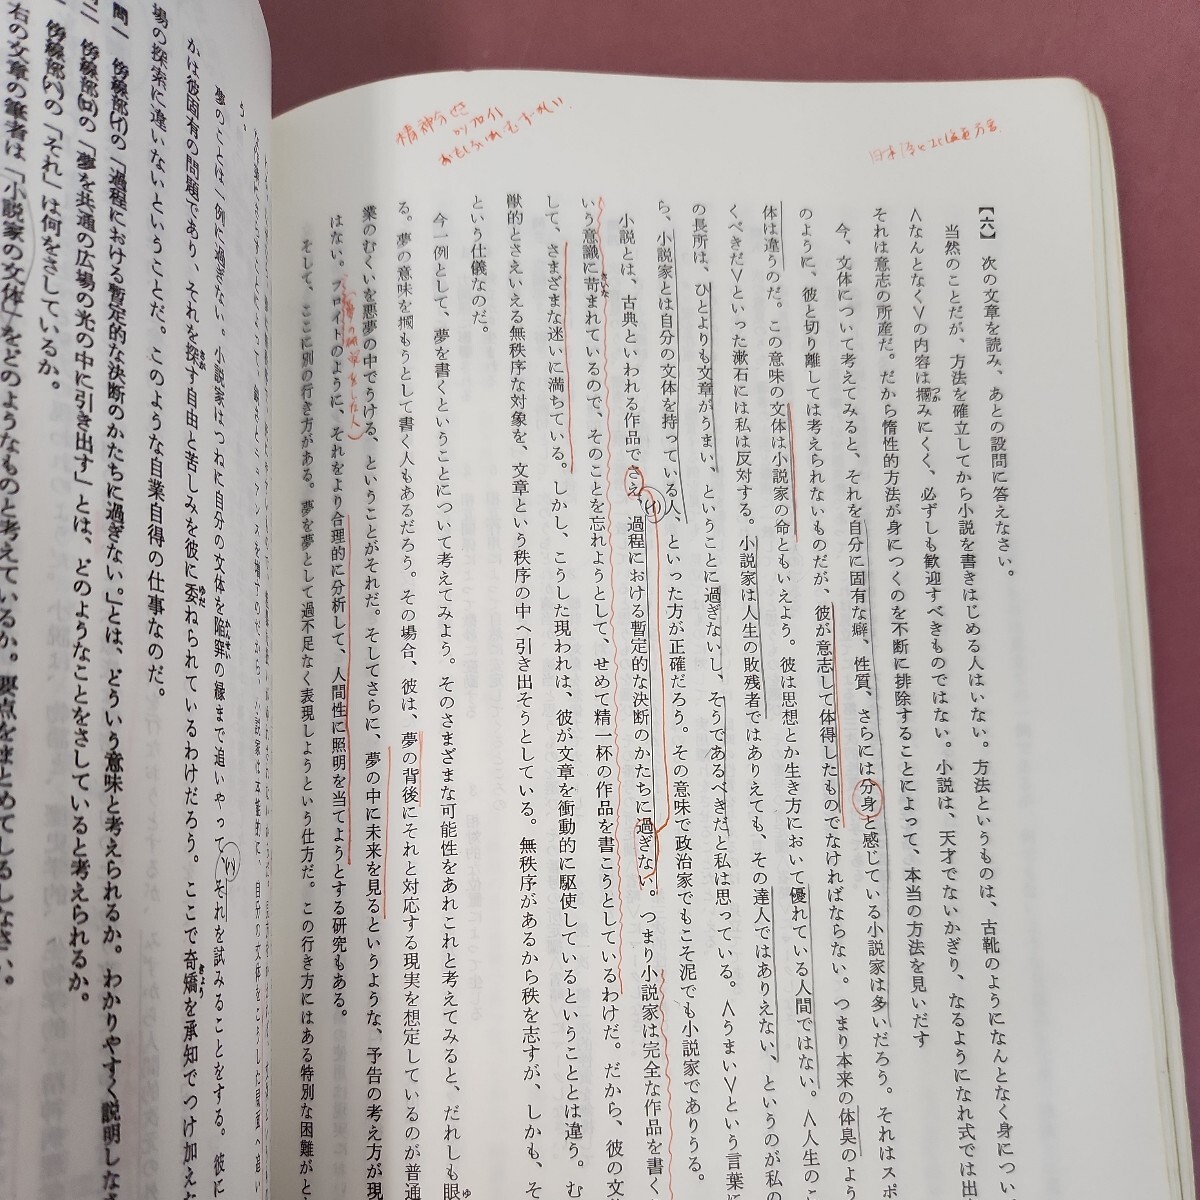 【六】 次の文章を読み、あとの設問に答えなさい。
当然のことだが、方法を確立してから小説を書きはじめる人はいない。方法というものは、古靴のようになんとなく身につい
〈なんとなく〉の内容は摑みにくく、必ずしも歓迎すべきものではない。小説は、天才でないかぎり、なるようになれ式では出
それは意志の所産だ。だから惰性的方法が身につくのを不断に排除することによって、本当の方法を見いだす
今、文体について考えてみると、それを自分に固有な癖、性質、さらには分身と感じている小説家は多いだろう。それはスポ
のように、彼と切り離しては考えられないものだが、彼が意志して体得したものでなければならない。つまり本来の体臭のよう
体は違うのだ。この意味の文体は小説家の命ともいえよう。彼は思想とか生き方において優れている人間ではない。〈人生のこ
くべきだ〉といった漱石には私は反対する。小説家は人生の敗残者ではありえても、その達人ではありえない、というのが私の
の長所は、ひとよりも文章がうまい、ということに過ぎないし、そうであるべきだと私は思っている。〈うまい〉という言葉に
ら、小説家とは自分の文体を持っている人、といった方が正確だろう。その意味で政治家でもこそ泥でも小説家でありうる。
小説とは、古典といわれる作品でさえ、(イ)過程における暫定的な決断のかたちに過ぎない。つまり小説家は完全な作品を書く
いう意識に苛まれているので、そのことを忘れようとして、せめて精一杯の作品を書こうとしているわけだ。だから、彼の文
して、さまざまな迷いに満ちている。しかし、こうした現われは、彼が文章を衝動的に駆使しているということとは違う。む
獣的とさえいえる無秩序な対象を、文章という秩序の中へ引き出そうとしている。無秩序があるから秩を志すが、しかも、そ
という仕儀なのだ。
今一例として、夢を書くということについて考えてみよう。そのさまざまな可能性をあれこれと考えてみると、だれしも眼
る。夢の意味を摑もうとして書く人もあるだろう。その場合、彼は、夢の背後にそれと対応する現実を想定しているのが普通
業のむくいを悪夢の中でうける、ということがそれだ。そしてさらに、夢の中に未来を見るというような、予告の考え方が現
はない。フロイトのように、それをより合理的に分析して、人間性に照明を当てようとする研究もある。
そして、ここに別の行き方がある。夢を夢として過不足なく表現しようという仕方だ。この行き方にはある特別な困難がと
う。
夢のことは一例に過ぎない。小説家はつねに自分の文体を陥穽の縁まで追いやって、(ハ)それを試みることをする。彼に
かは彼固有の問題であり、それを探す自由と苦しみを彼に委ねられているわけだろう。ここで奇矯を承知でつけ加えな
場の探索に違いないということだ。このような自業自得の仕事なのだ。
問一 傍線部(イ)の「過程における暫定的な決断のかたちに過ぎない。」とは、どういう意味と考えられるか。わかりやすく説明しな
問二 傍線部(ロ)の「夢を共通の広場の光の中に引き出す」とは、どのようなことをさしていると考えられるか。
傍線部(ハ)の「それ」は何をさしているか。
右の文章の筆者は「小説家の文体」をどのようなものと考えているか。要点をまとめてしるしなさい。